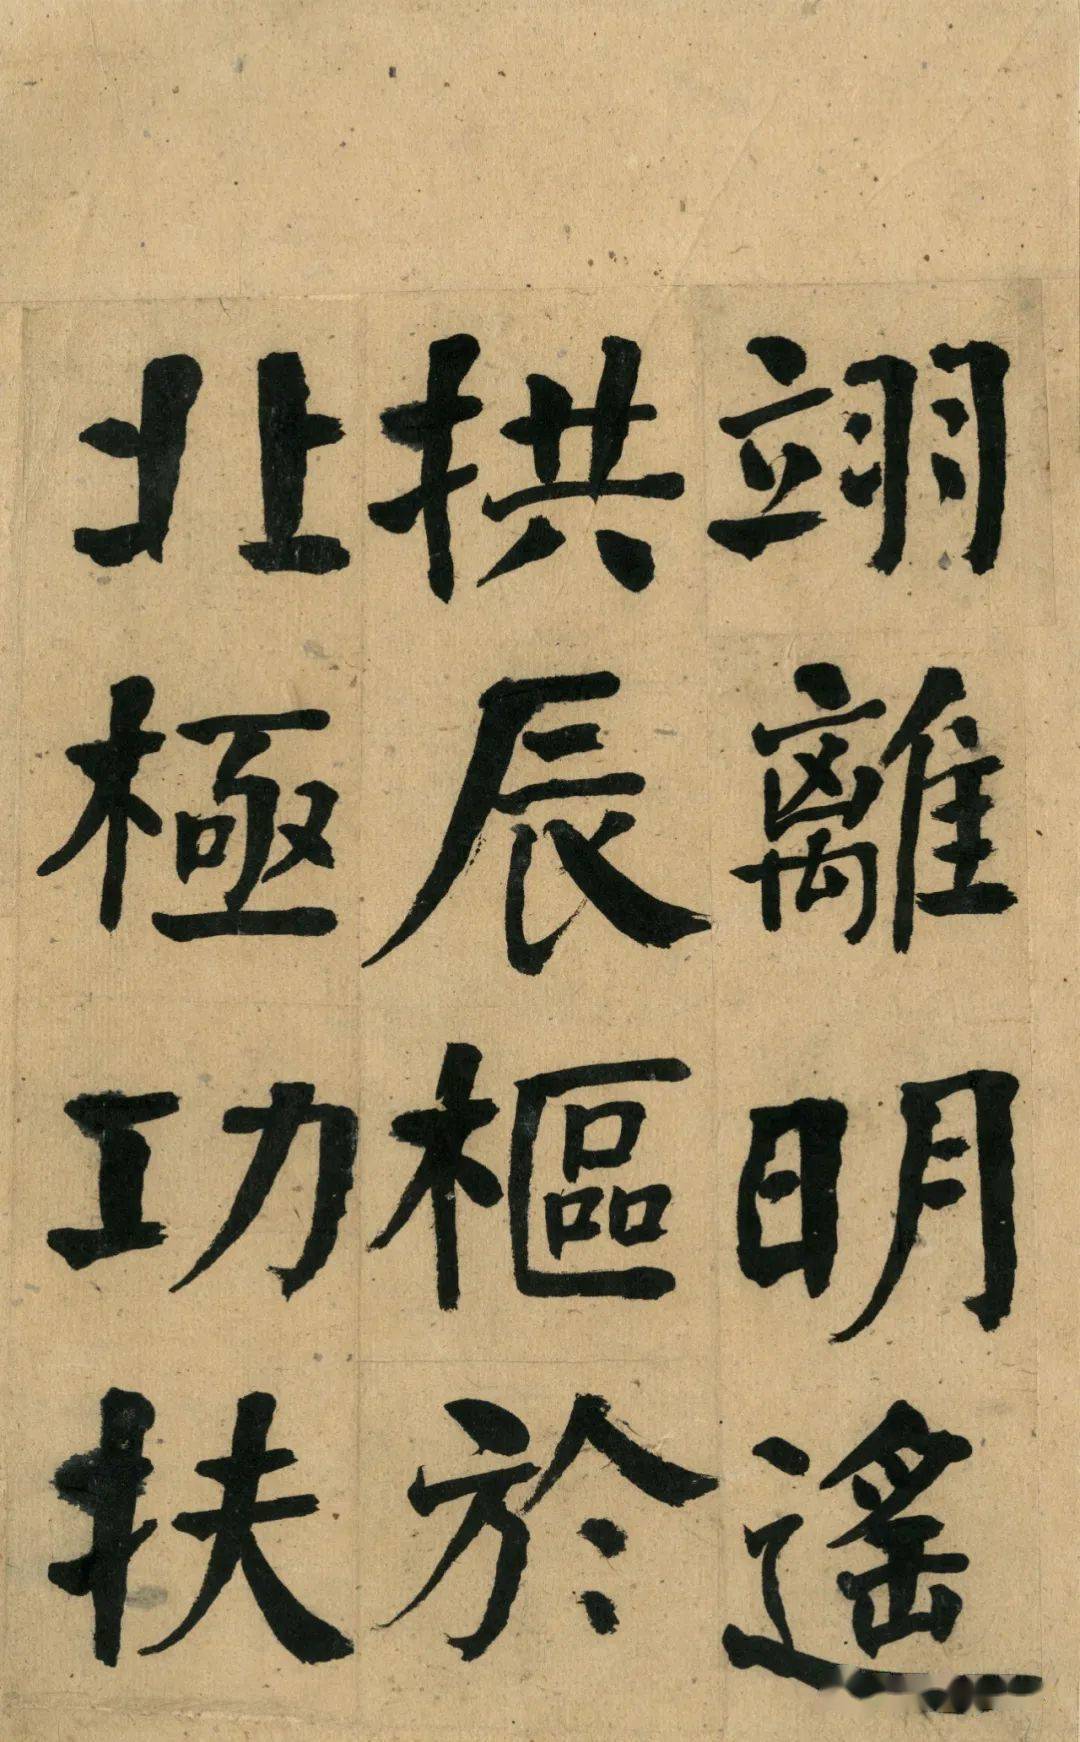 翊離明遙
拱辰樞於
北極功扶